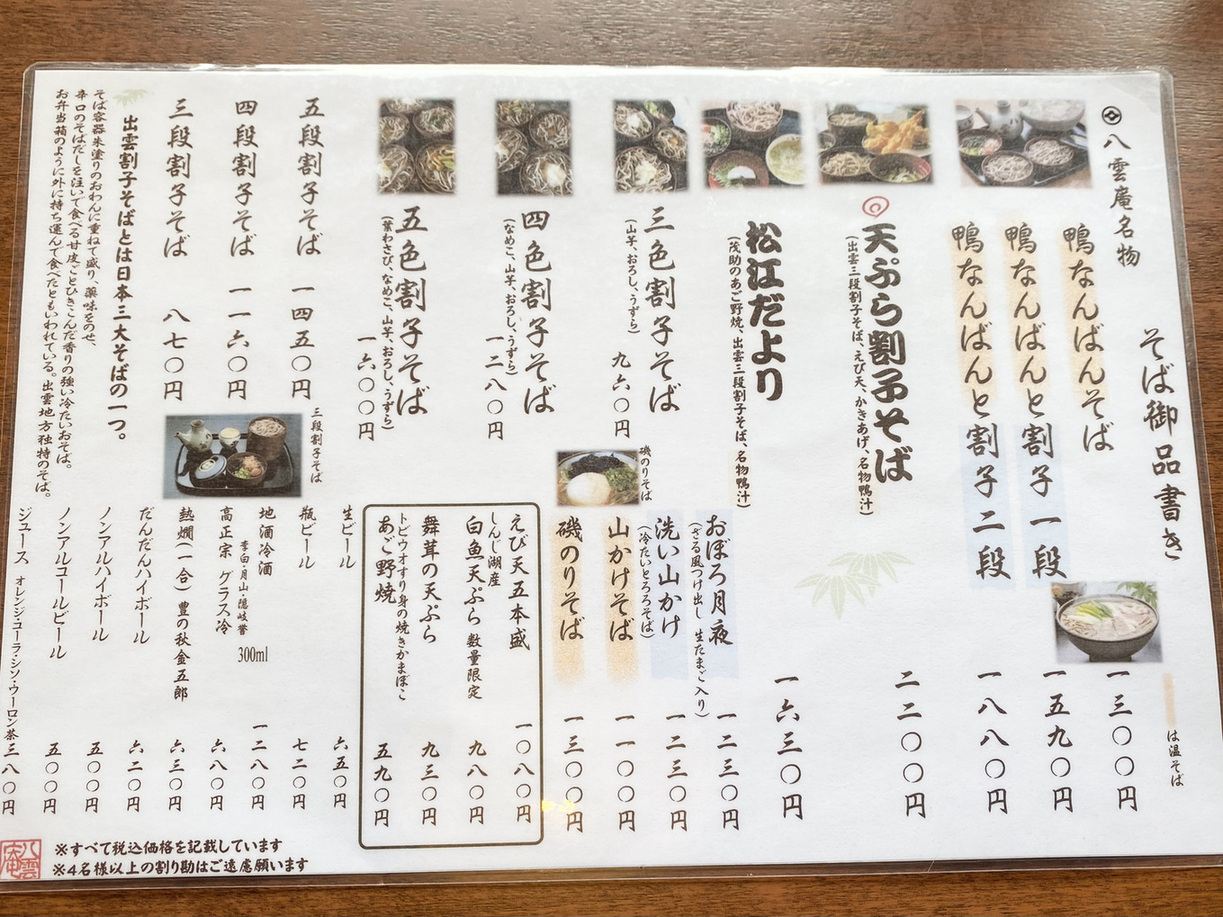 八雲庵名物
そば御品書き
は温そば
鴨なんばんそば 一三〇〇円
鴨なんばんと割子一段 一五九〇円
鴨なんばんと割子二段 一八八〇円
天ぷら割子そば 二二〇〇円
(出雲三段割子そば、えび天、かきあげ、名物鴨汁)
松江だより 一六三〇円
(茂助のあご野焼、出雲三段割子そば、名物鴨汁)
おぼろ月夜 一二三〇円
(ざる風つけ出し 生たまご入り)
洗い山かけ 一二三〇円
(冷たいとろろそば)
山かけそば 一一〇〇円
磯のりそば 一三〇〇円
磯のりそば
三色割子そば 九六〇円
(山芋、おろし、うずら)
四色割子そば 一二八〇円
(なめこ、山芋、おろし、うずら)
五色割子そば 一六〇〇円
(葉わさび、なめこ、山芋、おろし、うずら)
えび天五本盛 一〇八〇円
しんじ湖産
白魚天ぷら 数量限定 九八〇円
舞茸の天ぷら 九三〇円
トビウオすり身の焼きかまぼこ
あご野焼 五九〇円
五段割子そば 一四五〇円
四段割子そば 一一六〇円
三段割子そば 八七〇円
三段割子そば
出雲割子そばとは日本三大そばの一つ。
そば容器朱塗りのおわんに重ねて盛り、薬味をのせ、
辛口のそばだしを注いで食べる甘皮ごとひきこんだ香りの強い冷たいおそば。
お弁当箱のように外に持ち運んで食べたともいわれている。出雲地方独特のそば。
生ビール 六五〇円
瓶ビール 七二〇円
地酒冷酒 300ml 一二八〇円
李白・月山・隠岐誉
高正宗 グラス冷 六八〇円
熱燗(一合) 豊の秋金五郎 六三〇円
だんだんハイボール 六二〇円
ノンアルハイボール 五〇〇円
ノンアルコールビール 五〇〇円
ジュース オレンジ・コーラ・シソ・ウーロン茶 三八〇円
※すべて税込価格を記載しています
※4名様以上の割り勘はご遠慮願います
八雲庵